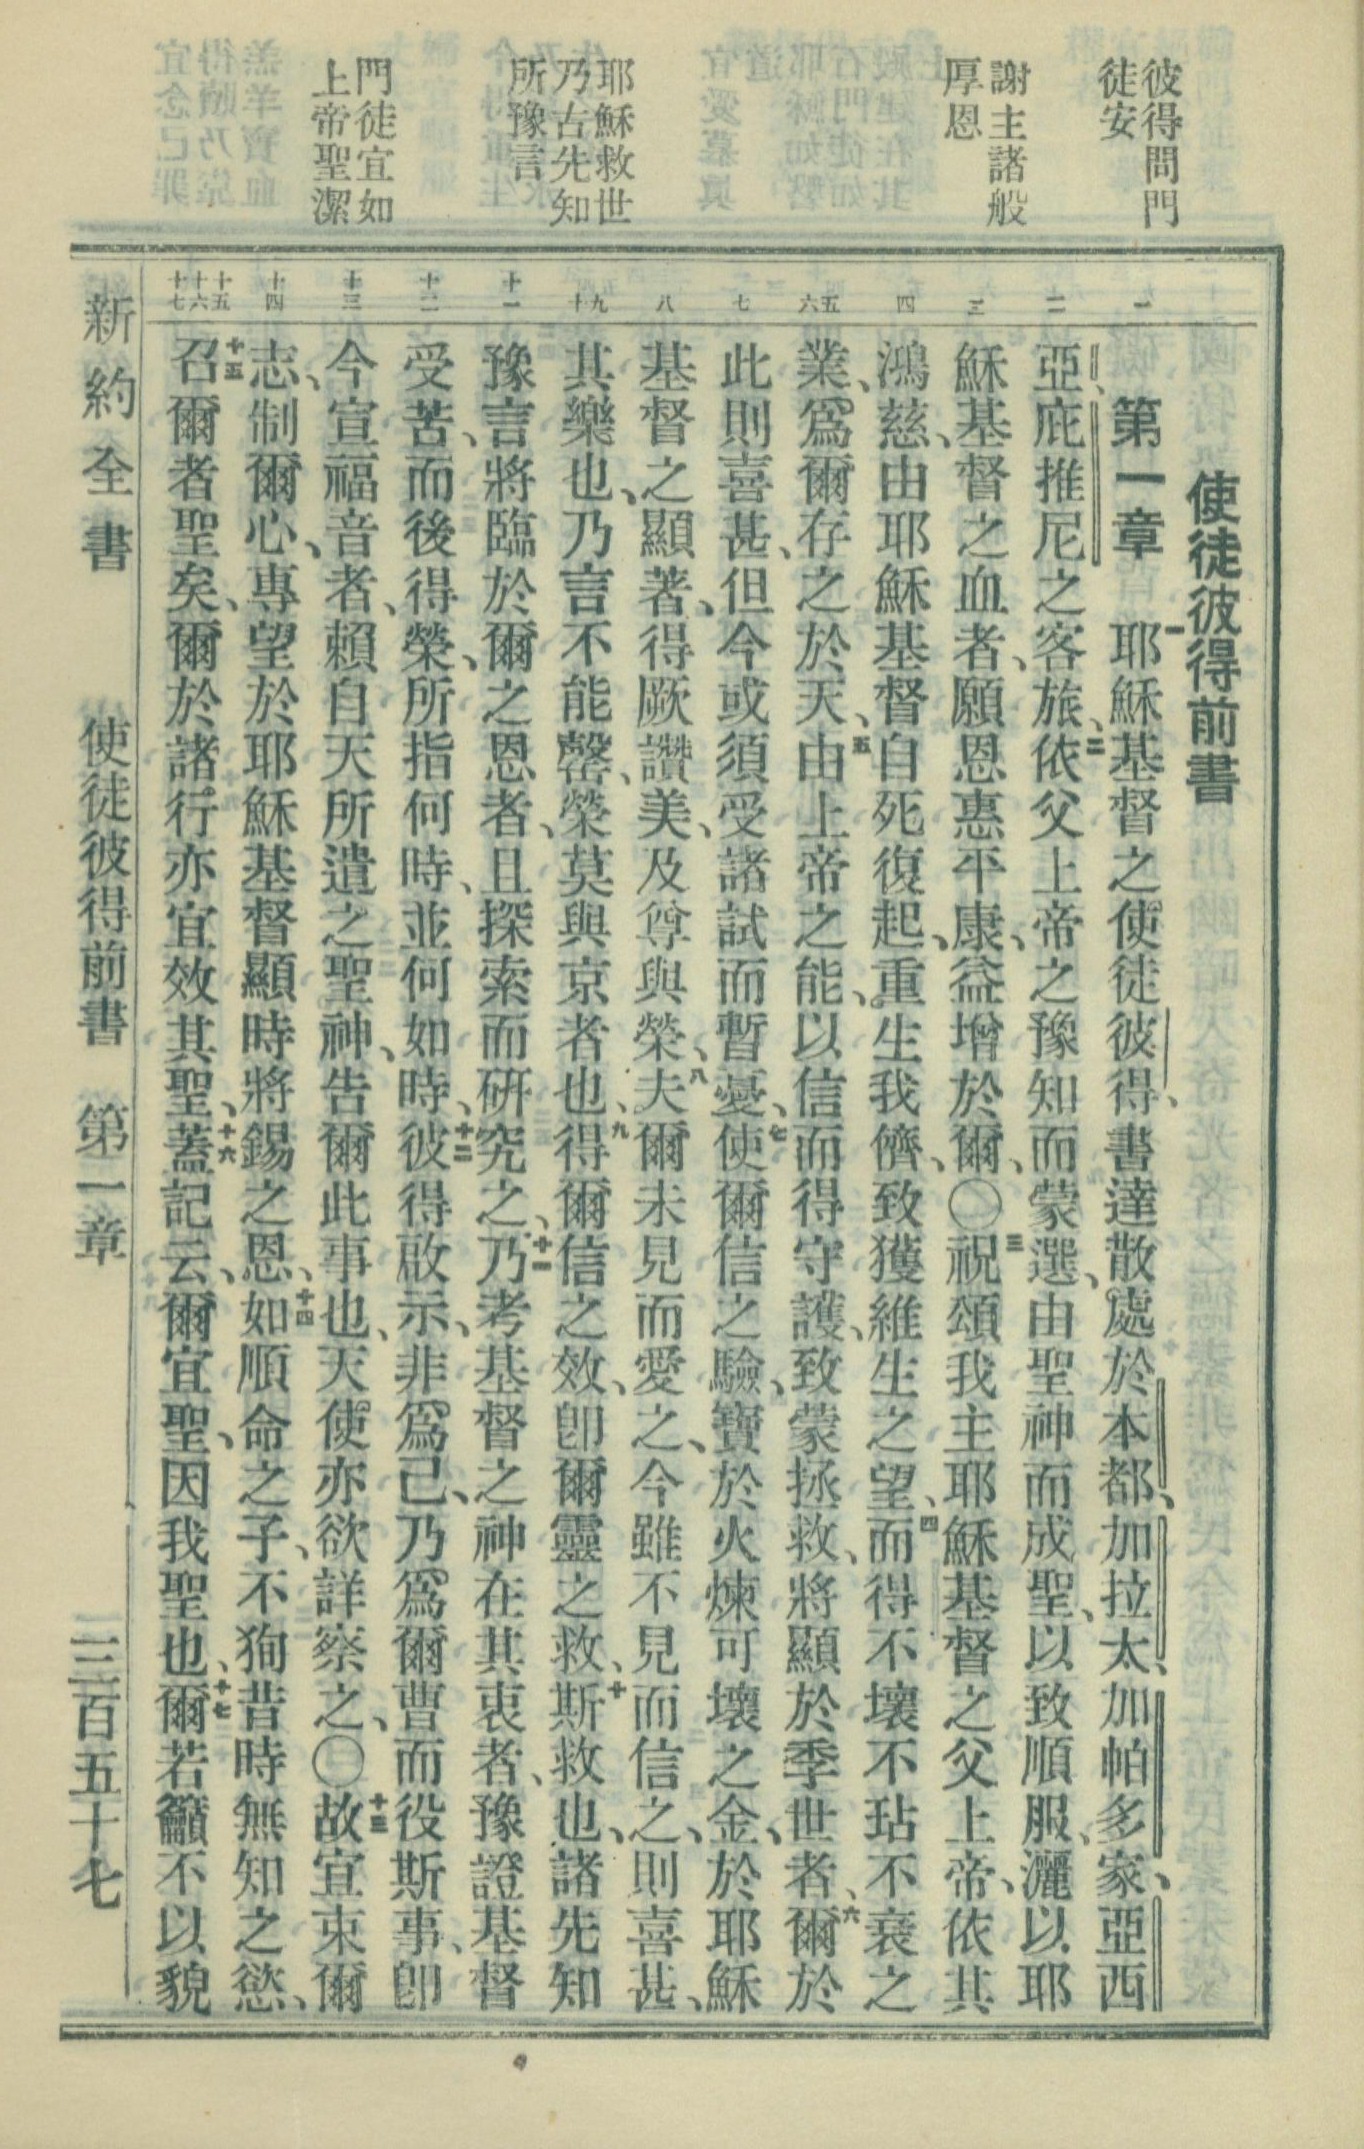 彼得問門
徒安
謝主諸般
厚恩
耶穌救世
乃古先知
所豫言
門徒宜如
上帝聖潔
一
二
三
四
五
六
七
八
九
十
十一
十二
十三
十四
十五
十六
十七
使徒彼得前書
第一章 一耶穌基督之使徒彼得、書達散處於本都、加拉太、加帕多家、亞西
亞、庇推尼之客旅、二依父上帝之豫知而蒙選、由聖神而成聖、以致順服、灑以耶
穌基督之血者、願恩惠平康、益增於爾、〇三祝頌我主耶穌基督之父上帝、依其
鴻慈、由耶穌基督自死復起、重生我儕、致獲維生之望、四而得不壞不玷不衰之
業、爲爾存之於天、五由上帝之能、以信而得守護、致蒙拯救、將顯於季世者、六爾於
此則喜甚、但今或須受諸試而暫憂、七使爾信之驗、寶於火煉可壞之金、於耶穌
基督之顯著、得厥讚美、及尊與榮、八夫爾未見而愛之、今雖不見而信之、則喜甚、
其樂也、乃言不能罄、榮莫與京者也、九得爾信之效、卽爾靈之救、十斯救也、諸先知
豫言將臨於爾之恩者、且探索而研究之、十一乃考基督之神在其衷者、豫證基督
受苦、而後得榮、所指何時、並何如時、十二彼得啟示、非爲己、乃爲爾曹而役斯事、卽
今宣福音者、賴自天所遣之聖神、告爾此事也、天使亦欲詳察之、〇十三故宜束爾
志、制爾心、專望於耶穌基督顯時將錫之恩、十四如順命之子、不狥昔時無知之慾、
十五召爾者聖矣、爾於諸行亦宜效其聖、十六蓋記云、爾宜聖、因我聖也、十七爾若籲不以貌
新約全書 使徒彼得前書 第一章 三百五十七